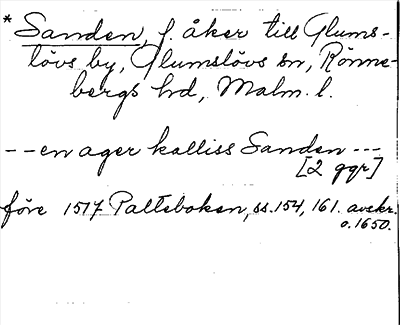 * Sanden, f. åker till Glums-
lövs by, Glumslövs sn, Rönne-
bergs hd, Malm. l.
--en ager kalliss Sanden ---
[2 ggr]
före 1517 Palteboken, ss. 154, 161. avskr.
o. 1650.